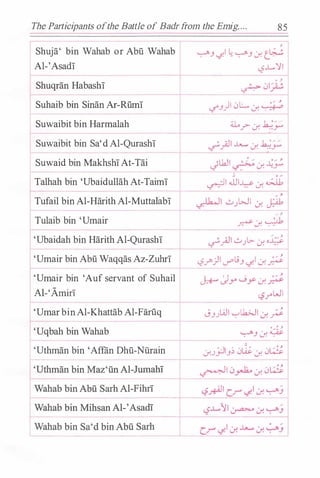 The Participants of the Battle of Badr from the Emig.... 85
Shujā‘ bin Wahab or Abū Wahab Al-’Asadī شجاع بن وهب أو أبي وهب الأسدي
Shuqrān Habashī شقران حبشي
Suhaib bin Sinān Ar-Rūmī صهيب بن سنان الرومي
Suwaibit bin Harmalah سويبط بن حرملة
Suwaibit bin Sa‘d Al-Qurashī سويبط بن سعد القرشي
Suwaid bin Makhshī At-Tāi سويد بن مخشي الطائي
Talhah bin ‘Ubaidullāh At-Taimī طلحة بن عبيدالله التيمي
Tufail bin Al-Hārith Al-Muttalabī طفيل بن الحارث المطلبي
Tulaib bin ‘Umair طليب بن عمير
‘Ubaidah bin Hārith Al-Qurashī عبيدة بن حارث القرشي
‘Umair bin Abū Waqqās Az-Zuhrī عمير بن أبي وقاص الزهري
‘Umair bin ‘Auf servant of Suhail Al-‘Āmirī عمير بن عوف مولى سهيل العامري
‘Umar bin Al-Khattāb Al-Fārūq عمر بن الخطاب الفاروق
‘Uqbah bin Wahab عقبة بن وهب
‘Uthmān bin ‘Affān Dhū-Nūrain عثمان بن عفان ذوالنورين
‘Uthmān bin Maz‘ūn Al-Jumahī عثمان بن مظعون الجمحي
Wahab bin Abū Sarh Al-Fihrī وهب بن أبي سرح الفهري
Wahab bin Mihsan Al-’Asadī وهب بن محصن الأسدي
Wahab bin Sa‘d bin Abū Sarh وهب بن سعد بن أبي سرح